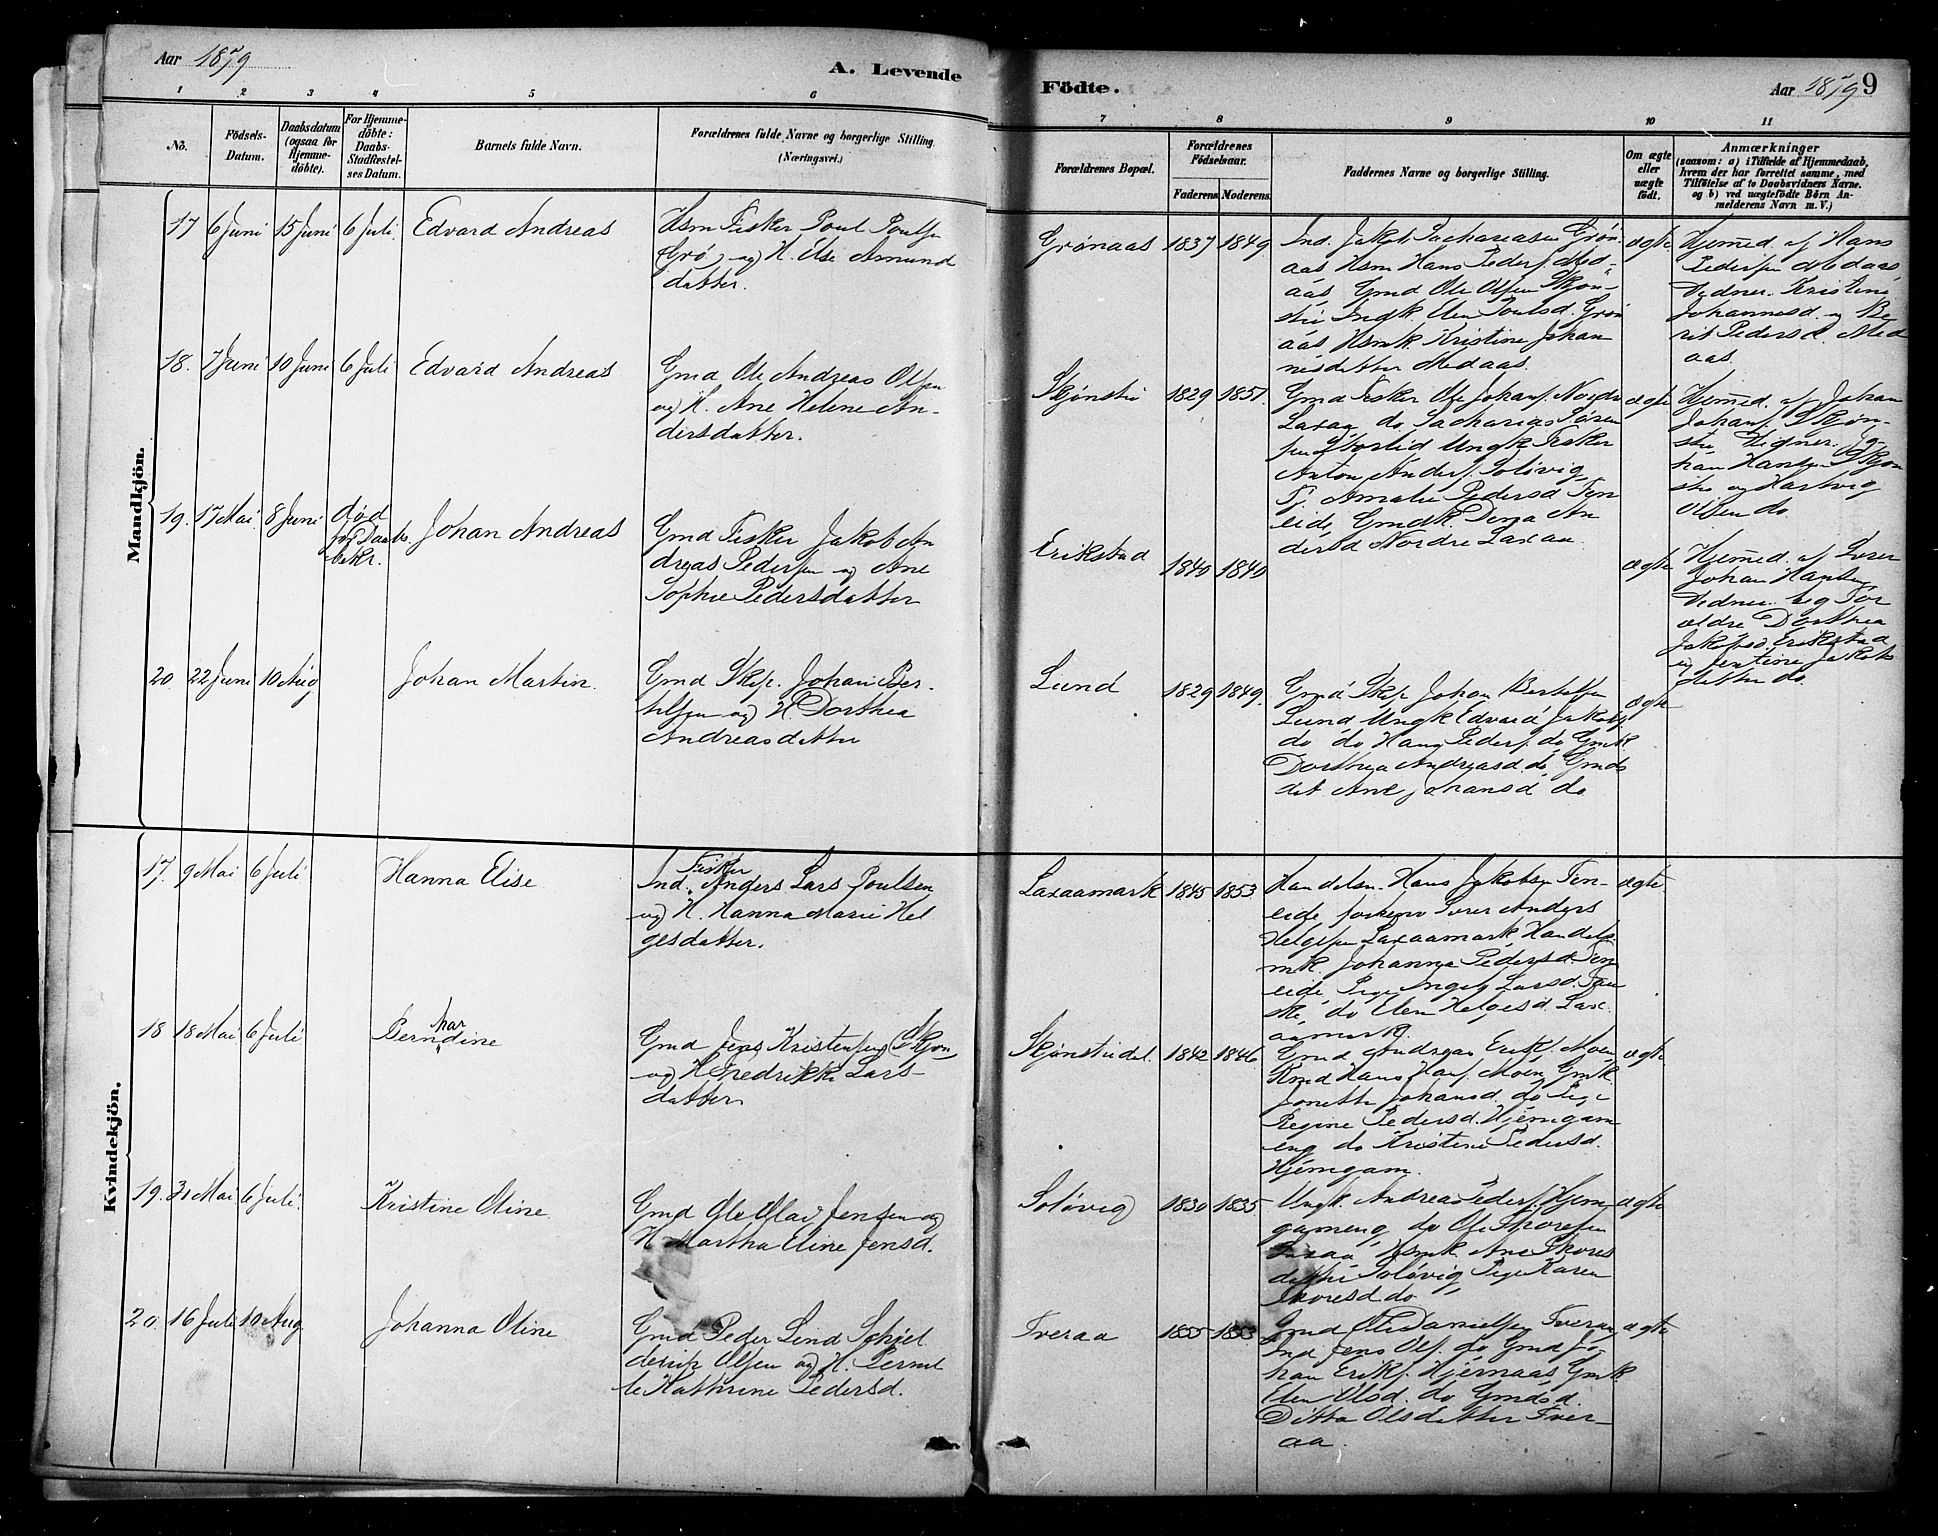 Aar 1879
A. Levende
Födte.
Aar 1879
9
1 2 3 4 5 6 7 8 9 10 11
No.
Födsels-
Datum.
Daabsdatum
(ogsaa for
Hjemme-
döbte).
For Hjemme-
döbte:
Daabs-
Stadfæstel-
ses Datum.
Barnets fulde Navn.
Forældrenes fulde Navne og borgerlige Stilling.
(Næringsvei.)
Forældrenes Bopæl.
Forældrenes
Födselsaar.
Faderens. Moderens.
Faddernes Navne og borgerlige Stilling.
Om ægte
eller
uægte
født.
Anmærkninger
(saasom: a) i Tilfælde af Hjemmedaab,
hvem der har forrettet samme, med
Tilföielse af to Daabsvidners Navne.
og b) ved uægtefödte Börn An-
melderens Navn m.V.)
Mandkjön.
17 6 Juni 15 Juni 6 Juli. Edvard Andreas
Hsm Fisker Poul Poulsen
Grø og H. Else Amund
datter.
Grønaas 1837 1849
Ind. Jakob Sachariasen Grøn-
aas Hsm Hans Peders. Med-
aas Gmd Ole Olsen Skjøn-
stu Indk Elen Poulsd. Grøn
aas Hsmk Kristine Johan
nesdatter Medaas.
ægte
Hjemmed. af Hans
Pedersen Medaas
Vidner. Kristine
Johannesd. og Be
rit Pedersd. Med
aas.
18. 7 Juni 10 Juni 6 Juli Edvard Andreas
Gmd Ole Andreas Olsen
og H. Ane Helene An-
dersdatter.
Skjønstu 1829 1851.
Gmd Fisker Ole Johans. Nordre
Laxaa do Sacharias Søren
sen Storlid Ungk Fisker
Anton Anders. Soløvig
Pj. Amalie Pedersd Fen
eide Gmdk Dorea An
dersd Nordre Laxaa
ægte
Hjemmed. af Johan
Johans. Skjøn-
stu Vidner. Jo-
han Hansen Skjøn
stu og Hartvig
Olsen do.
19. 17 Mai 8 Juni død
før Daabs
bekr.
Johan Andreas
Gmd Fisker Jakob An
dreas Pedersen og Ane
Sophie Pedersdatter
Erikstad 1840 1840
ægte
Hjemmed. af Lærer
Johan Hansen
Vidner. og For
ældre Dorthea
Jakobsd. Erikstad
og Jentine Jakobs
datter do.
20. 22 Juni 10 Aug Johan Martin.
Gmd Skp. Johan Ber-
telsen og H. Dorthea
Andreasdatter
Lund 1829 1849.
Gmd Skp Johan Bertelsen
Lund Ungk Edvard Jakobs.
do do Hans Peders. do Gmk
Dorthea Andreasd. do Gmds
dat. Ane Johansd do
ægte
Kvindekjön.
17. 9 Mai 6 Juli Hanna Elise
Fisker
Ind. Anders Lars Poulsen
og H. Hanna Marie Hel
gesdatter.
Laxaamark 1845 1853
Handelsm. Hans Jakobsen Fen-
eide Lærer Anders
Helgesen Laxaamark Handels
mk. Johanna Pedersd. Fen
eide Pige Ingeb Larsd. Fau
ske, do Elen Helgesd Lax
aamark.
ægte
18 18 Mai 6 Juli Berndine
har
Gmd Jens Kristensen Skjøn
og H. Fredrikke Lars-
datter
Skjønstudal. 1842 1846
Gmd Andreas Erik. Moen
Kmd Hans Hans. Moen Gmk.
Jonette Johansd. do Pige
Regine Pedersd. Hjemgam
eng do Kristine Pedersd.
Hjemgam.
ægte
19. 31 Mai 6 Juli. Kristine Oline
Gmd Ole Olai Jensen og
H. Martha Eline Jensd.
Soløvig 1830 1835
Ungk. Andreas Peders. Hjem
gameng do Ole Skoresen
Laxaa Hsmk. Ane Skores
datter Soløvig Pige Karen
Skoresd do
ægte
20. 16 Juli 10 Aug. Johanna Oline
Gmd Peder Lind Schjel
derup Olsen og H. Pernil
le Kathrine Pedersd.
Tveraa 1855 1853
Gmd Ole Danielsen Tveraa
Ind Jens Ols. do Gmd Jo
han Eriks. Hjernaas Gmk
Elen Olsd. do Gmdsd.
Ditta Olsdatter Tver-
aa.
ægte